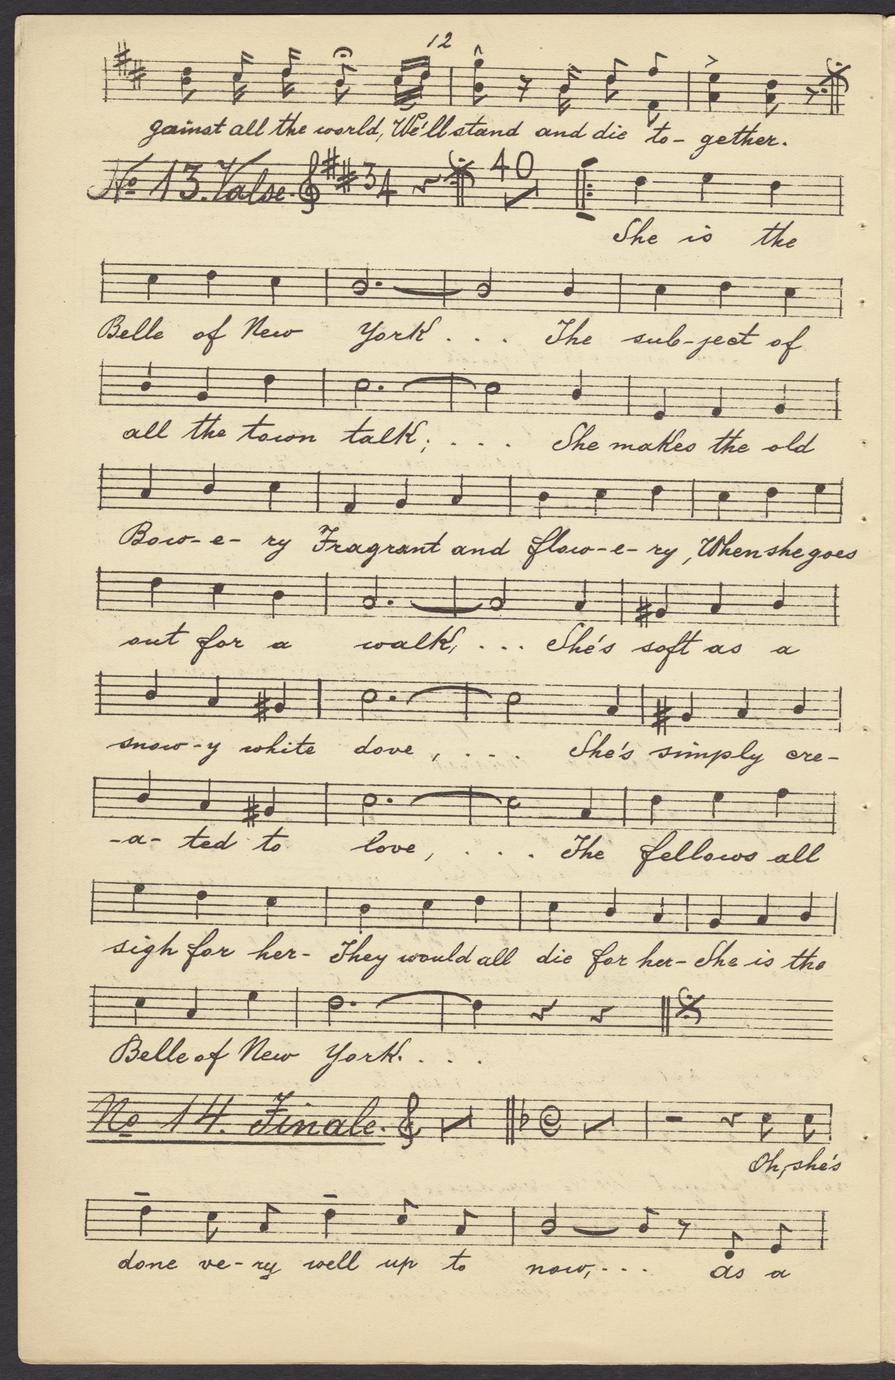 12
gainst all the world, We'll stand and die to- gether.
No 13. Valse. 3 4 40
She is the
Belle of New York . . . The sub-ject of
all the town talk; . . . She makes the old
Bow-e-ry Fragrant and flow-e-ry, When she goes
out for a walk, . . . She's soft as a
snow-y white dove, . . . She's simply cre-
-a-ted to love, . . . . The fellows all
sigh for her- They would all die for her- She is the
Belle of New York. . . .
No 14. Finale.
Oh, she's
done ve-ry well up to now, . . . as a